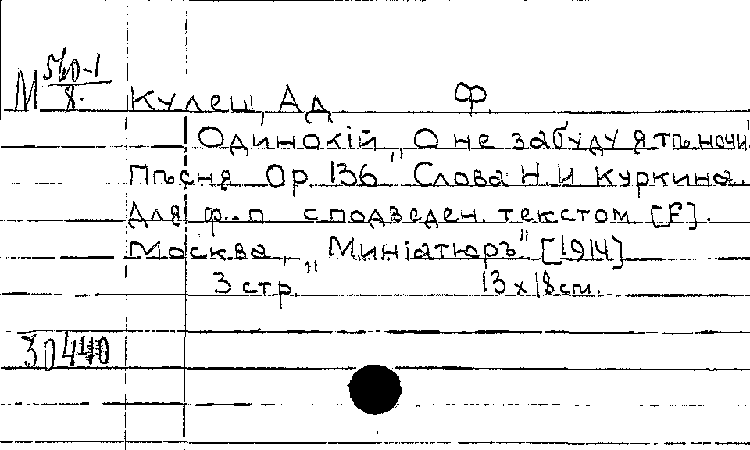 М 560-1/8.
Кулец, Ад Ф.
Одинокій „О не забуду я тѣ ночи
Пѣсня Ор 136 Слова Н. И Куркина.
Для ф.-п. с подведен. текстом [F].
Москва, „Миніатюръ" [1914]
3 стр. 13 x 18 см.
30440